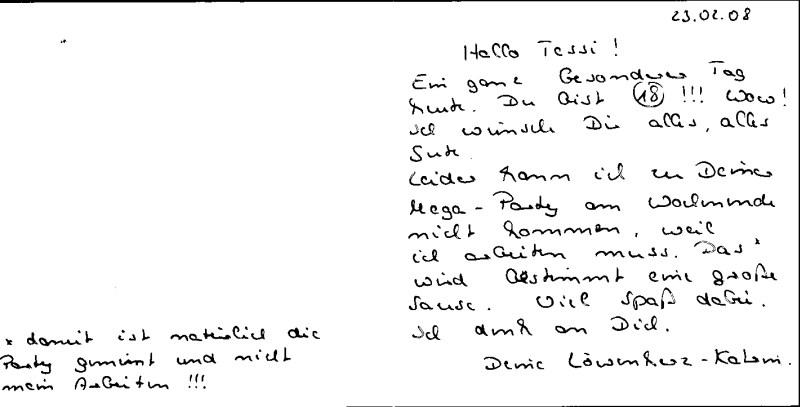 23.02.08
Hallo Tessi!
Ein ganz besonderer Tag
heute. Du bist 18 !!! Wow!
Ich wünsche Dir alles, alles
Gute.
Leider kann ich zu Deiner
Mega-Party am Wochenende
nicht kommen, weil
ich arbeiten muss. Das*
wird bestimmt eine große
Sause. Viel Spaß dabei.
Ich denk an Dich.
Deine Löwenherz-
* damit ist natürlich die
Party gemeint und nicht
mein Arbeiten !!!